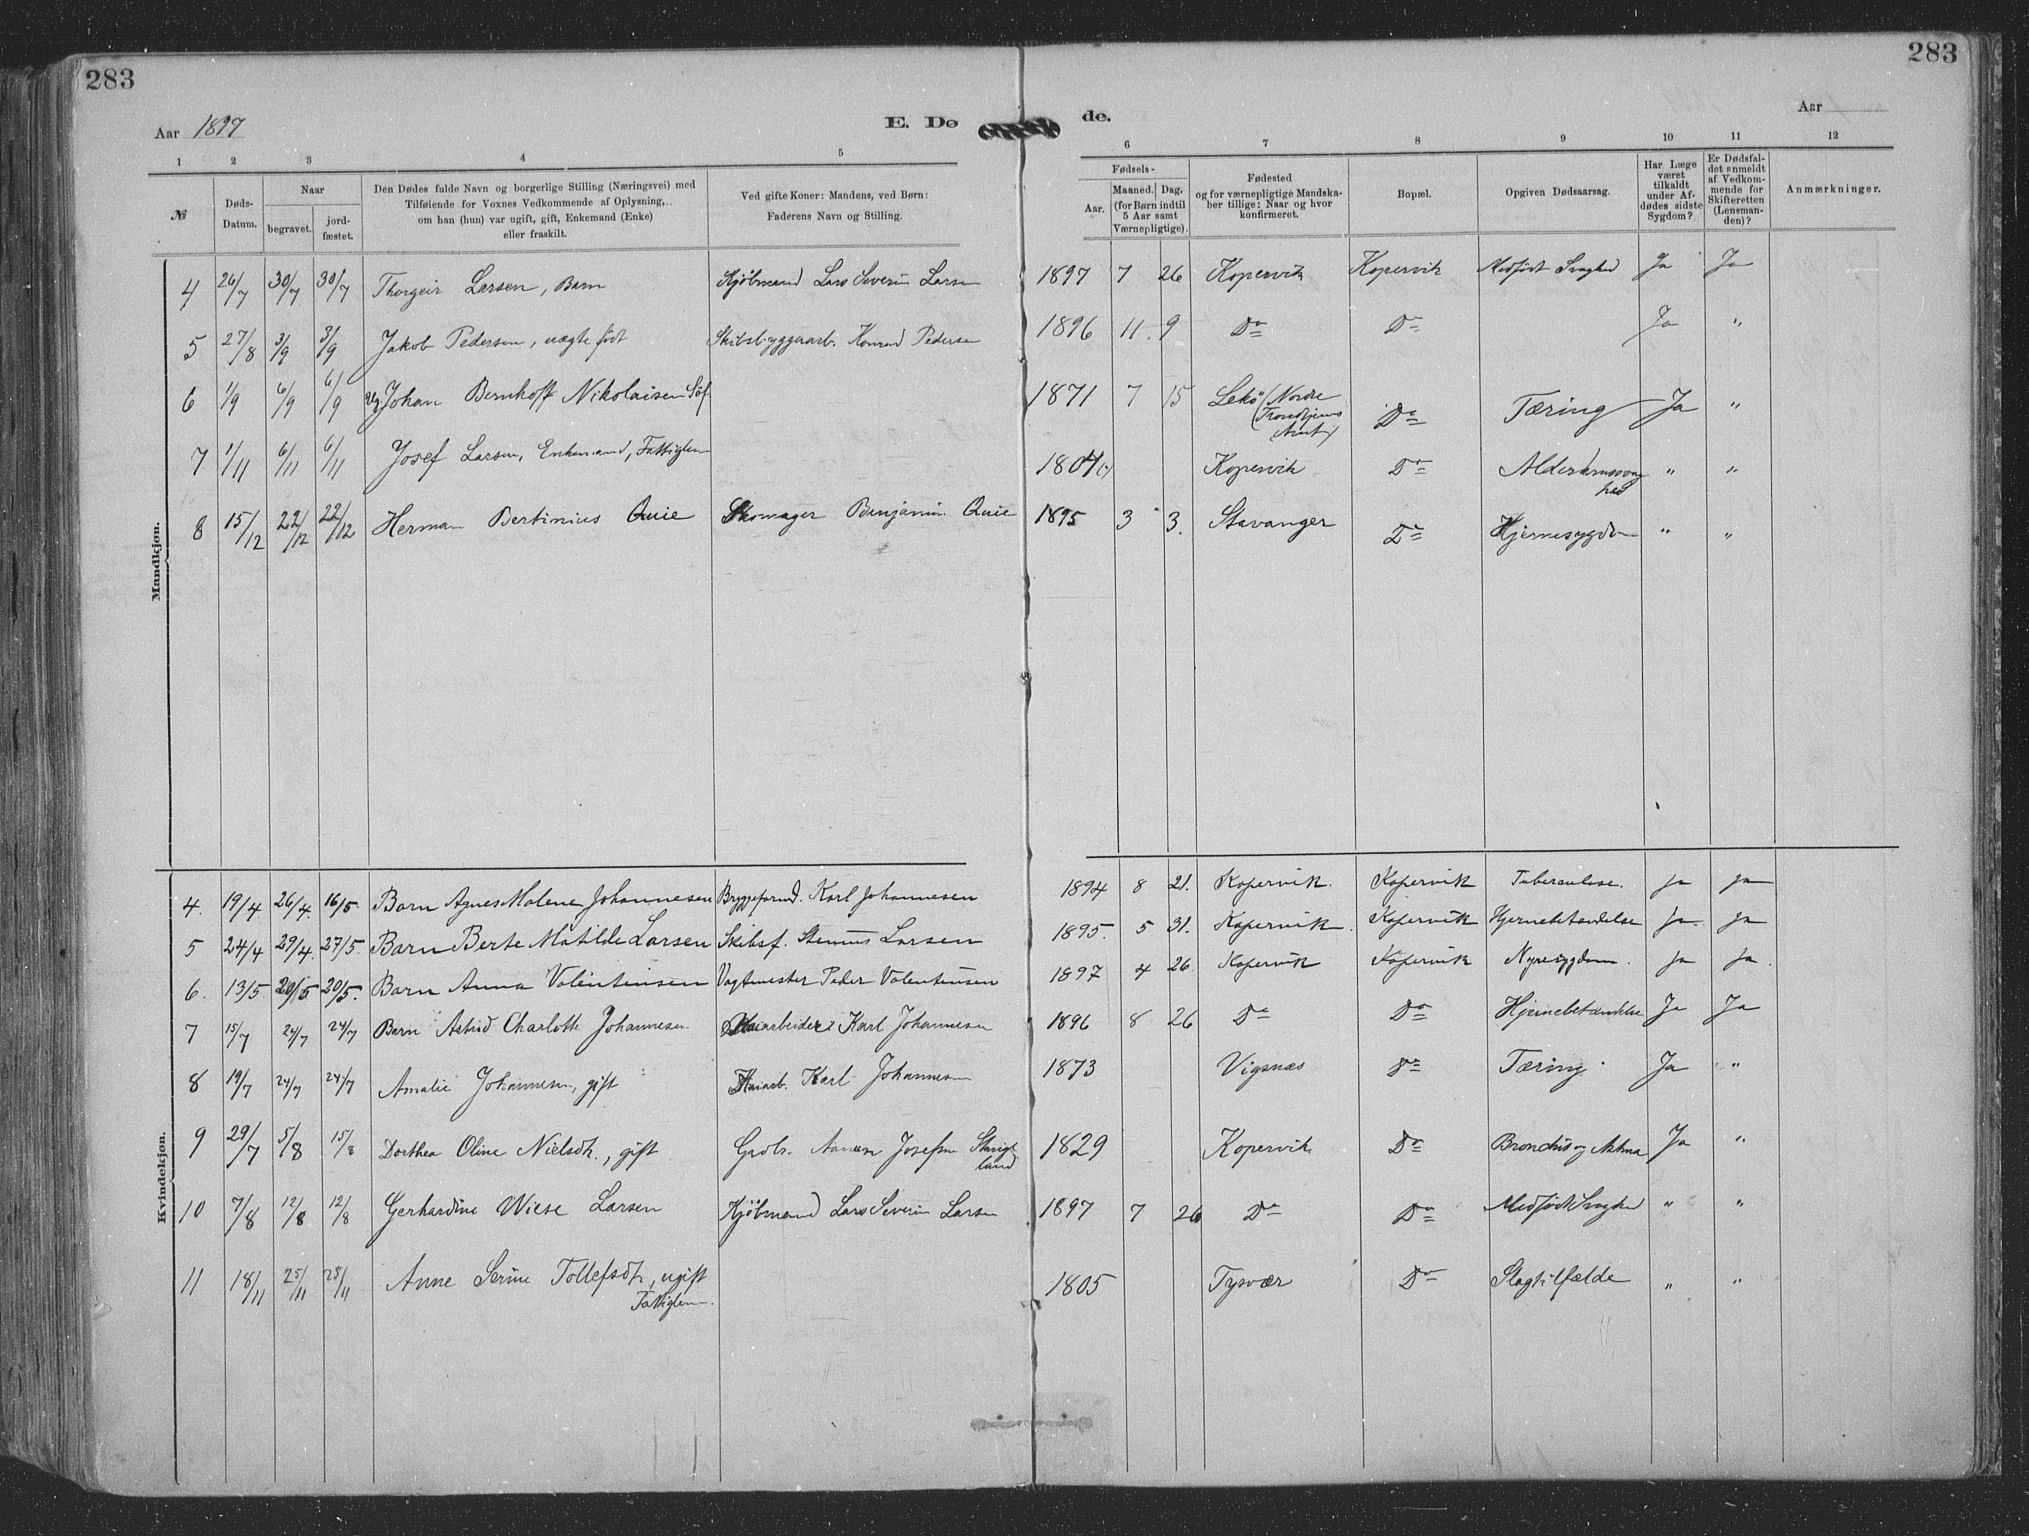 283
283
Aar 1897
E. Dø
de.
Aar
1 2 3 4 5 6 7 8 9 10 11 12
№
Døds-Datum.
Naar
begravet.
jord-fæstet.
Den Dødes fulde Navn og borgerlige Stilling (Næringsvei) med
Tilføiende for Voxnes Vedkommende af Oplysning,
om han (hun) var ugift, gift, Enkemand (Enke)
eller fraskilt.
Ved gifte Koner: Mandens, ved Børn:
Faderens Navn og Stilling.
Fødsels-
Aar.
Maaned. Dag.
(for Børn indtil
5 Aar samt
Værnepligtige).
Fødested
og for værnepligtige Mandska-
ber tillige: Naar og hvor
konfirmeret.
Bopæl.
Opgiven Dødsaarsag.
Har Læge
været
tilkaldt
under Af-
dødes sidste
Sygdom?
Er Dødsfal-
det anmeldt
af Vedkom-
mende for
Skifteretten
(Lensman-
den)?
Anmærkninger.
Mandkjøn.
4 26/7 30/7 30/7 Thorgeir Larsen, Barn Kjøbmand Lars Severin Larsen 1897 7 26 Kopervik Kopervik Medfødt Svaghed Ja Ja
5 27/8 3/9 3/9 Jakob Pedersen, uægte født Skibsbyggerarb. Konrad Pedersen 1896 11 9 Do Do Ja "
6 1/9 6/9 6/9 Ug. Johan Bernhoft Nikolaisen Søf. 1871 7 15 Lekø (Nordre
Trondhjems
Amt) Do Tæring Ja "
7 1/11 6/11 6/11 Josef Larsen, Enkemand, Fattiglem Kopervik Do Alderdomssvag
hed " "
8 15/12 22/12 22/12 Herman Bertinius Quie Skomager Benjamin Quie 1895 3 3. Stavanger Do Hjernesygdom " "
Kvindekjøn.
4. 19/4 26/4. 16/5. Barn Agnes Malene Johannesen Bryggeformd. Karl Johannesen 1894 8 21. Kopervik. Kopervik Tuberculose. ja ja
5 24/4 29/4. 27/5. Barn Berte Matilde Larsen Skibsf. Larsen 1895. 5 31. Kopervik. Kopervik Hjernebetændelse ja. ja
6. 13/5 20/5 20/5. Barn Anna Valentinsen Vagtmester Peder Valentinsen 1897 4 26. Kopervik Kopervik Nyresygdom. ja ja.
7 15/7 24/7 24/7 Barn Astrid Charlotte Johannesen Kaiarbeider Karl Johannesen 1896 8 26 Do Do Hjernebetændelse Ja Ja
8 19/7 24/7 24/7 Amalie Johannesen, gift Kaiarb. Karl Johannesen 1873 Vigsnæs Do Tæring. Ja "
9 29/7 5/8 15/8 Dorthea Oline Nielsdtr., gift Josefsen
land 1829 Kopervik Do Bronchit og Astma Ja "
10 7/8 12/8 12/8 Gerhardine Wiese Larsen Kjøbmand Lars Severin Larsen 1897 7 26 Do Do Medfødt Svaghed " "
11 18/11 25/11 25/11 Anne Serine Tollefsdtr., ugift
Fattiglem. 1805 Tysvær Do Slagtilfælde " "